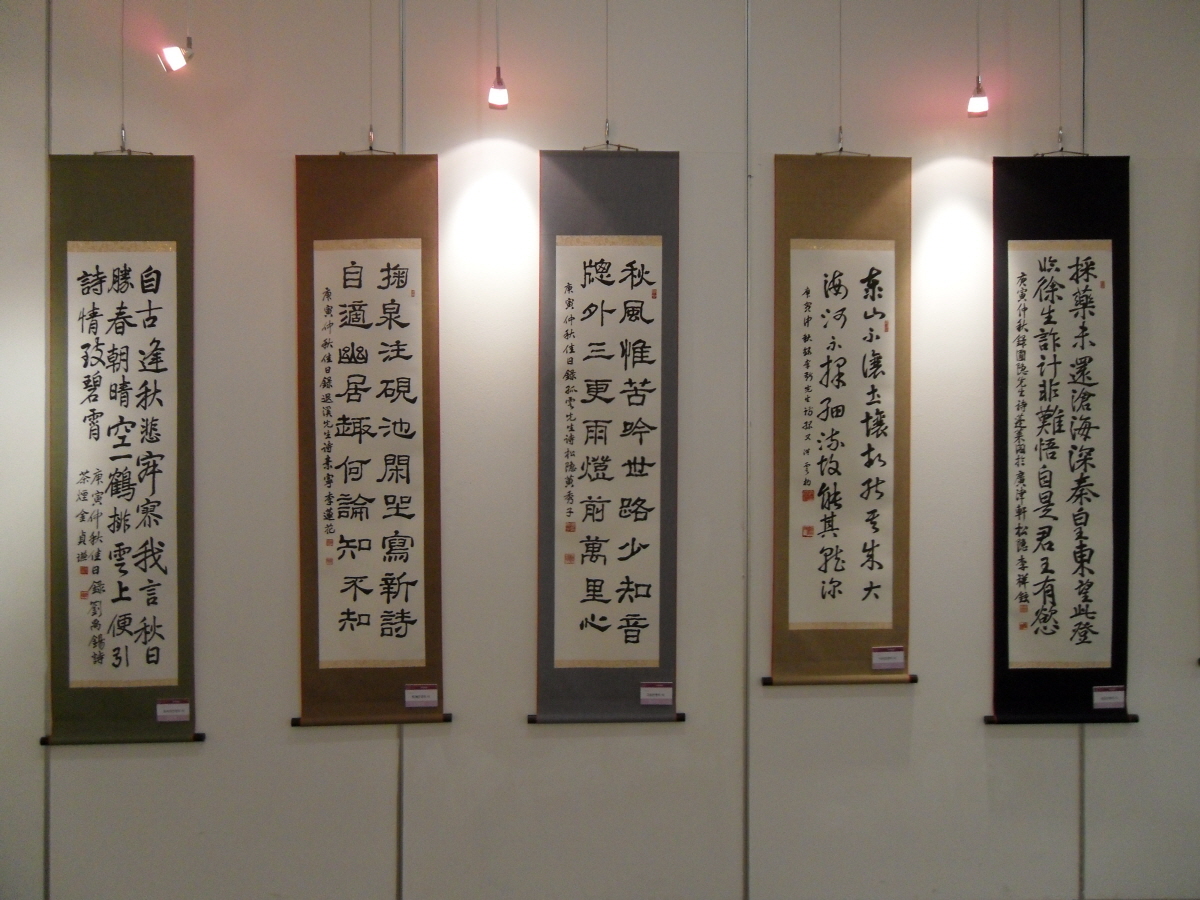 自古逢秋悲寂寥我言秋日
勝春朝晴空一鶴排雲上便引
詩情致碧霄
庚寅仲秋佳日錄劉禹錫詩
茶煙金貞
掬泉注硯池閑坐寫新詩
自適幽居趣何論知不知
庚寅仲秋佳日錄退溪先生詩素宇李蓮花
秋風惟苦吟世路少知音
牕外三更雨燈前萬里心
庚寅仲秋佳日錄孤雲先生詩松隱黃秀子
泰山不讓土壤故能其成大
海河不擇細流故能其就深
庚寅仲秋錄李斯先生
採藥未還滄海深秦皇東望此登
臨徐生詐計非難悟自是君王有慾心
庚寅仲秋錄圃隱先生詩蓬萊閣於廣津軒松隱李祥鉉